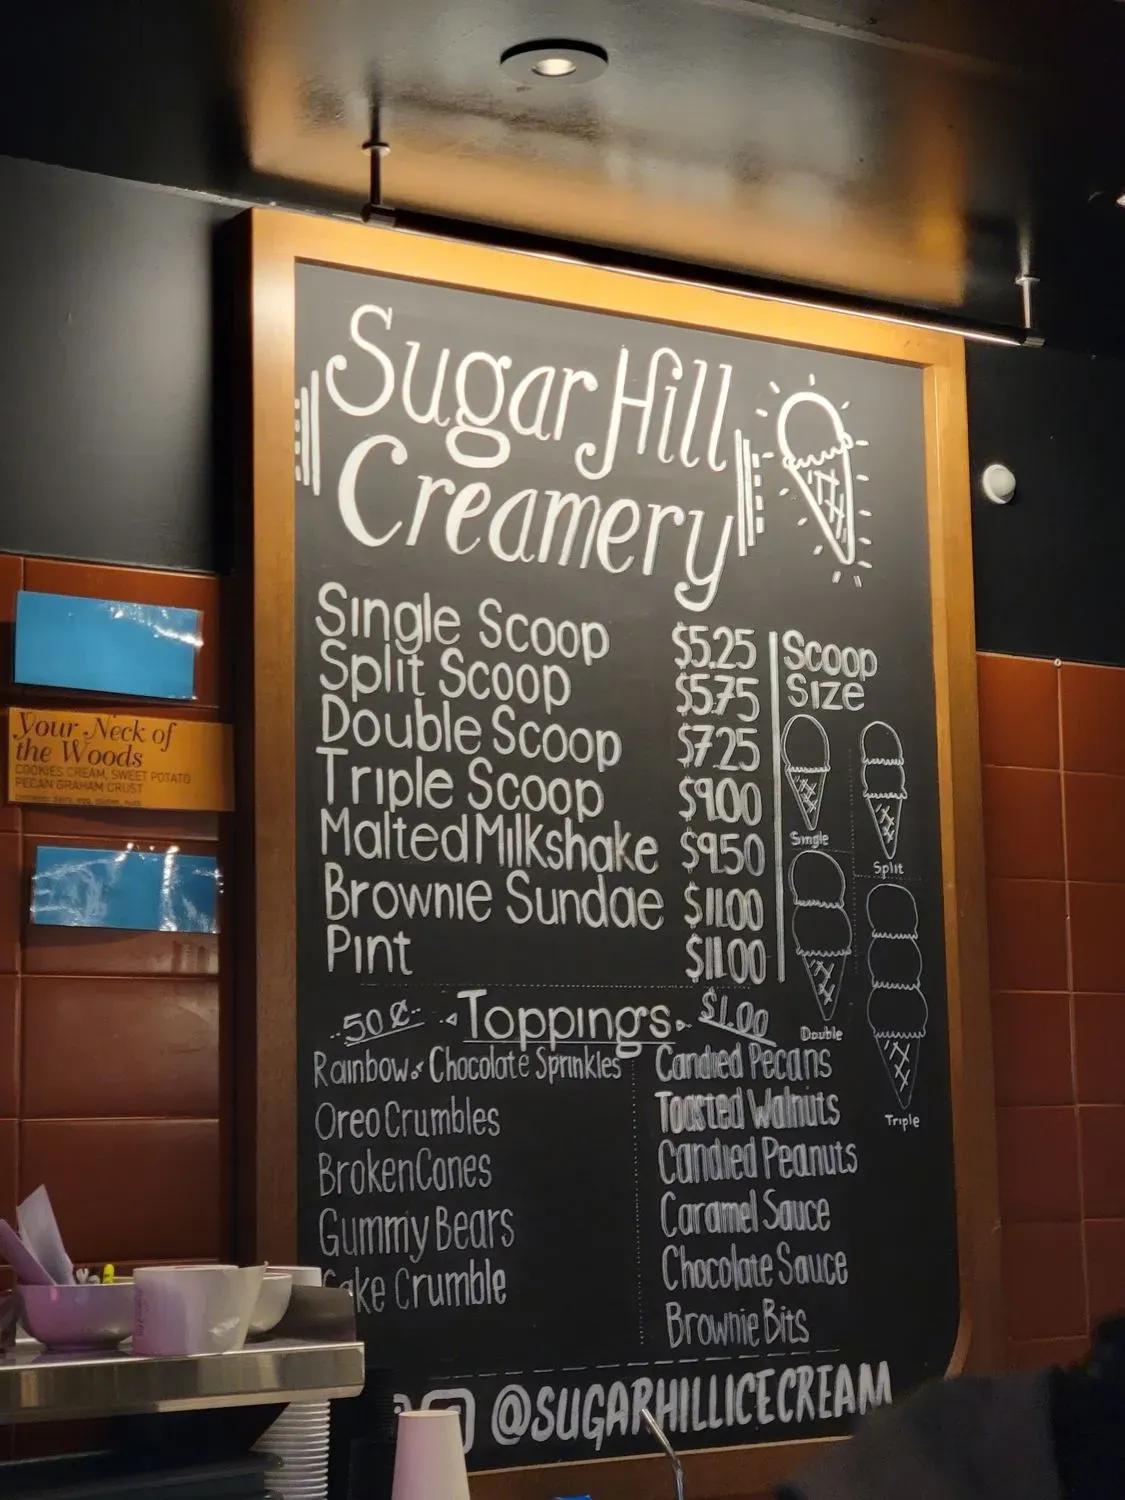 Sugar Hill
Creamery
Single Scoop $5.25
Split Scoop $5.75
Double Scoop $7.25
Triple Scoop $9.00
Malted Milkshake $9.50
Brownie Sundae $11.00
Pint $11.00
Scoop
Size
Single
Split
Double
Triple
50¢ Toppings $1.00
Rainbow & Chocolate Sprinkles
Oreo Crumbles
Broken Cones
Gummy Bears
Cake Crumble
Candied Pecans
Toasted Walnuts
Candied Peanuts
Caramel Sauce
Chocolate Sauce
Brownie Bits
@SUGARHILLICECREAM
Your Neck of
the Woods
COOKIES CREAM, SWEET POTATO
PECAN GRAHAM CRUST